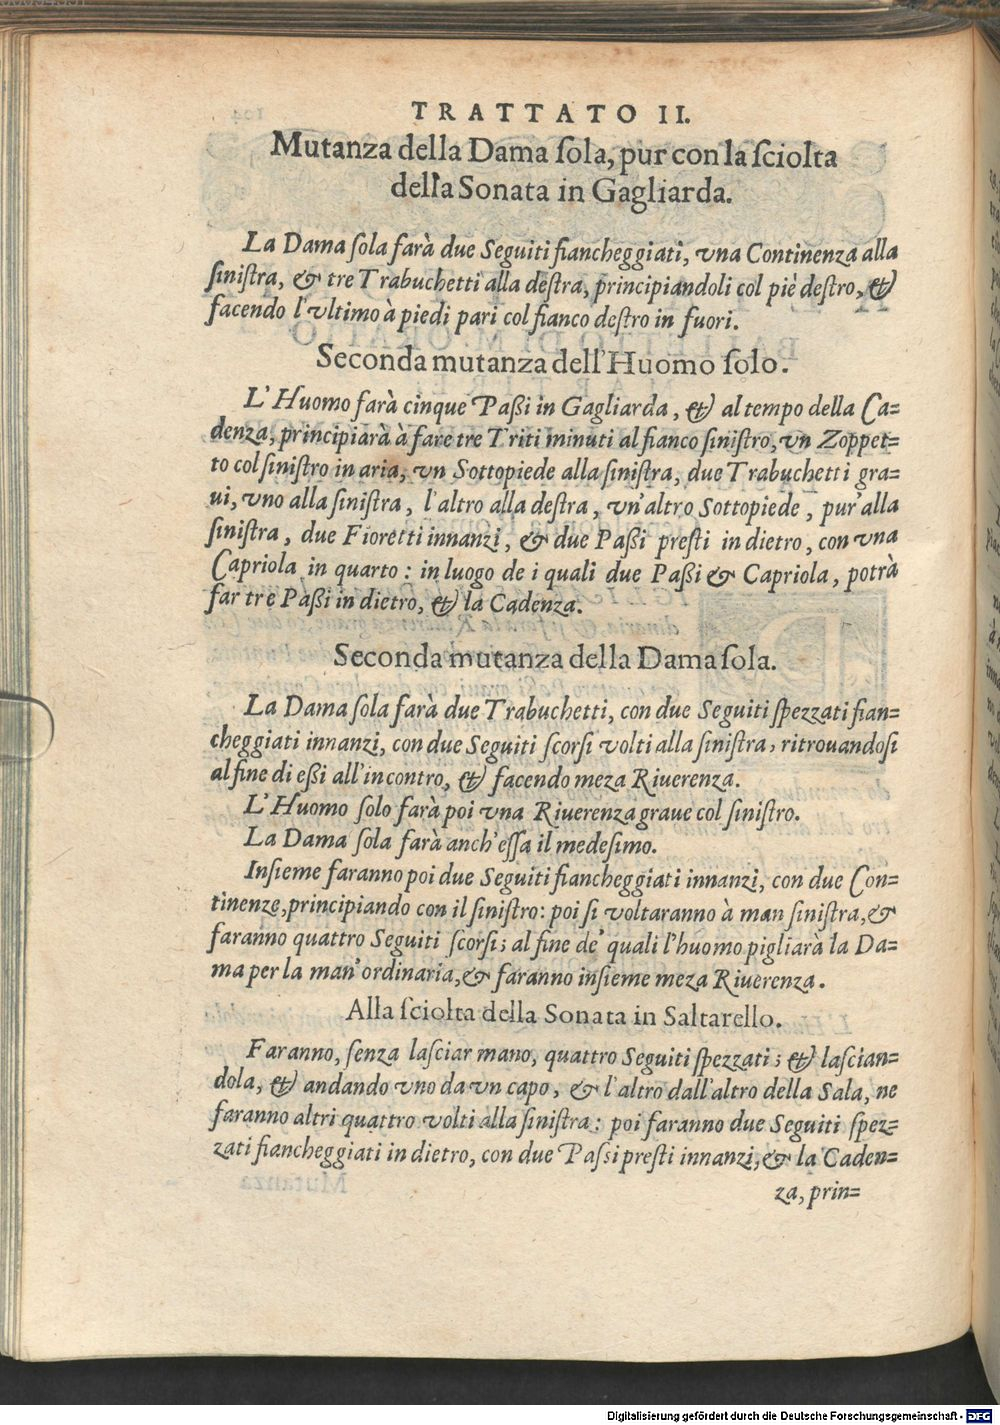 TRATTATO II.
Mutanza della Dama ſola, pur con la ſciolta
della Sonata in Gagliarda.
La Dama ſola farà due Seguiti fiancheggiati, vna Continenza alla
ſiniſtra, & tre Trabuchetti alla deſtra, principiandoli col piè deſtro, &
facendo l'vltimo à piedi pari col fianco deſtro in fuori.
Seconda mutanza dell'Huomo ſolo.
L'Huomo farà cinque Paßi in Gagliarda, & al tempo della Ca=
denza, principiarà à fare tre Triti minuti al fianco ſiniſtro, vn Zoppet=
to col ſiniſtro in aria, vn Sottopiede alla ſiniſtra, due Trabuchetti gra=
ui, vno alla ſiniſtra, l'altro alla deſtra, vn'altro Sottopiede, pur'alla
ſiniſtra, due Fioretti innanzi, & due Paßi preſti in dietro, con vna
Capriola in quarto: in luogo de i quali due Paßi & Capriola, potrà
far tre Paßi in dietro, & la Cadenza.
Seconda mutanza della Dama ſola.
La Dama ſola farà due Trabuchetti, con due Seguiti ſpezzati fian=
cheggiati innanzi, con due Seguiti ſcorſi volti alla ſiniſtra, ritrouandoſi
al fine di eßi all'incontro, & facendo meza Riuerenza.
L'Huomo ſolo farà poi vna Riuerenza graue col ſiniſtro.
La Dama ſola farà anch'eſſa il medeſimo.
Inſieme faranno poi due Seguiti fiancheggiati innanzi, con due Con=
tinenze, principiando con il ſiniſtro: poi ſi voltaranno à man ſiniſtra, &
faranno quattro Seguiti ſcorſi; al fine de' quali l'huomo pigliarà la Da=
ma per la man' ordinaria, & faranno inſieme meza Riuerenza.
Alla ſciolta della Sonata in Saltarello.
Faranno, ſenza laſciar mano, quattro Seguiti ſpezzati; & laſcian=
dola, & andando vno da vn capo, & l'altro dall'altro della Sala, ne
faranno altri quattro volti alla ſiniſtra: poi faranno due Seguiti ſpez=
zati fiancheggiati in dietro, con due Paſsi preſti innanzi, & la Caden=
za, prin=
Digitalisierung gefördert durch die Deutsche Forschungsgemeinschaft - DFG